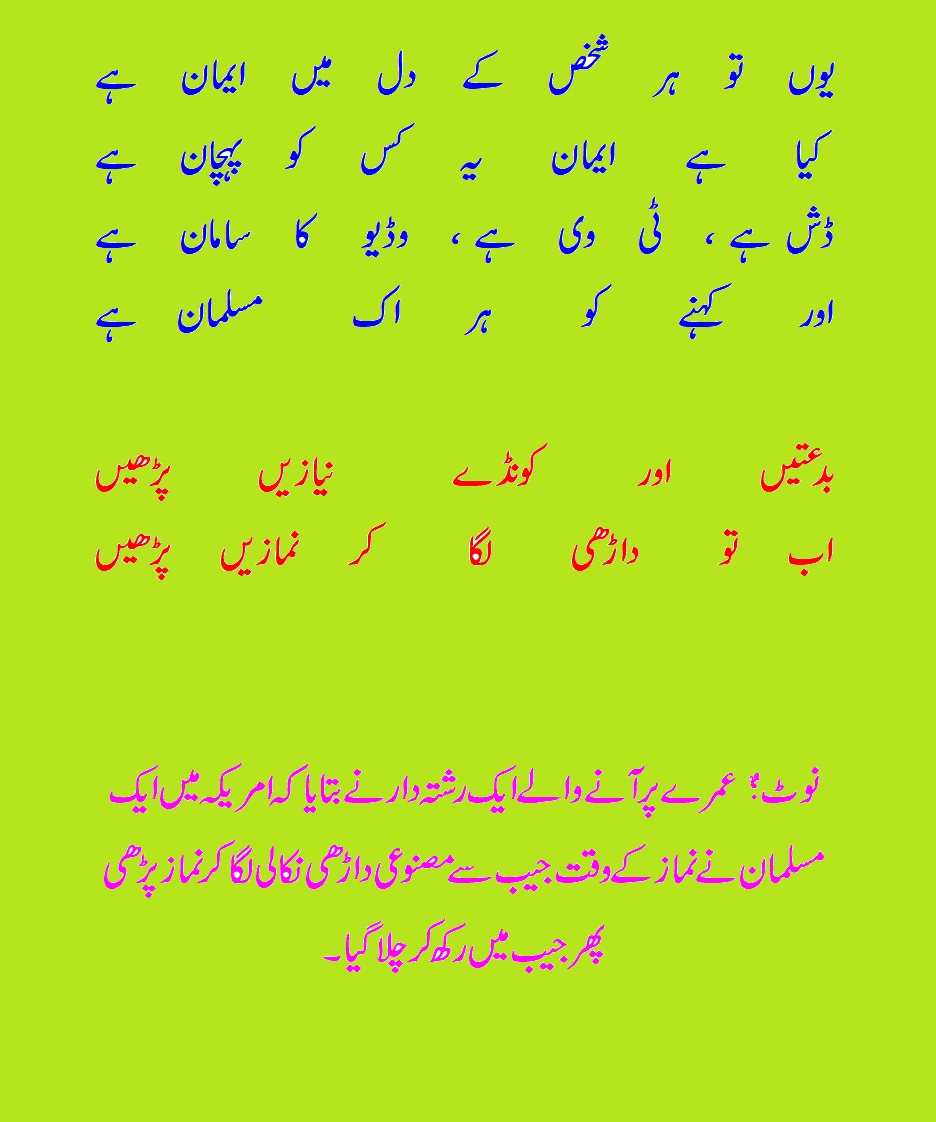 یوں تو ہر شخص کے دل میں ایمان ہے
کیا ہے ایمان یہ کس کو پہچان ہے
ڈش ہے ، ٹی وی ہے ، وڈیو کا سامان ہے
اور کہنے کو ہر اک مسلمان ہے
بدعتیں اور کونڈے نیازیں پڑھیں
اب تو داڑھی لگا کر نمازیں پڑھیں
نوٹ: عمرے پر آنے والے ایک رشتہ دار نے بتایا کہ امریکہ میں ایک
مسلمان نے نماز کے وقت جیب سے مصنوعی داڑھی نکالی لگا کر نماز پڑھی
پھر جیب میں رکھ کر چلا گیا۔